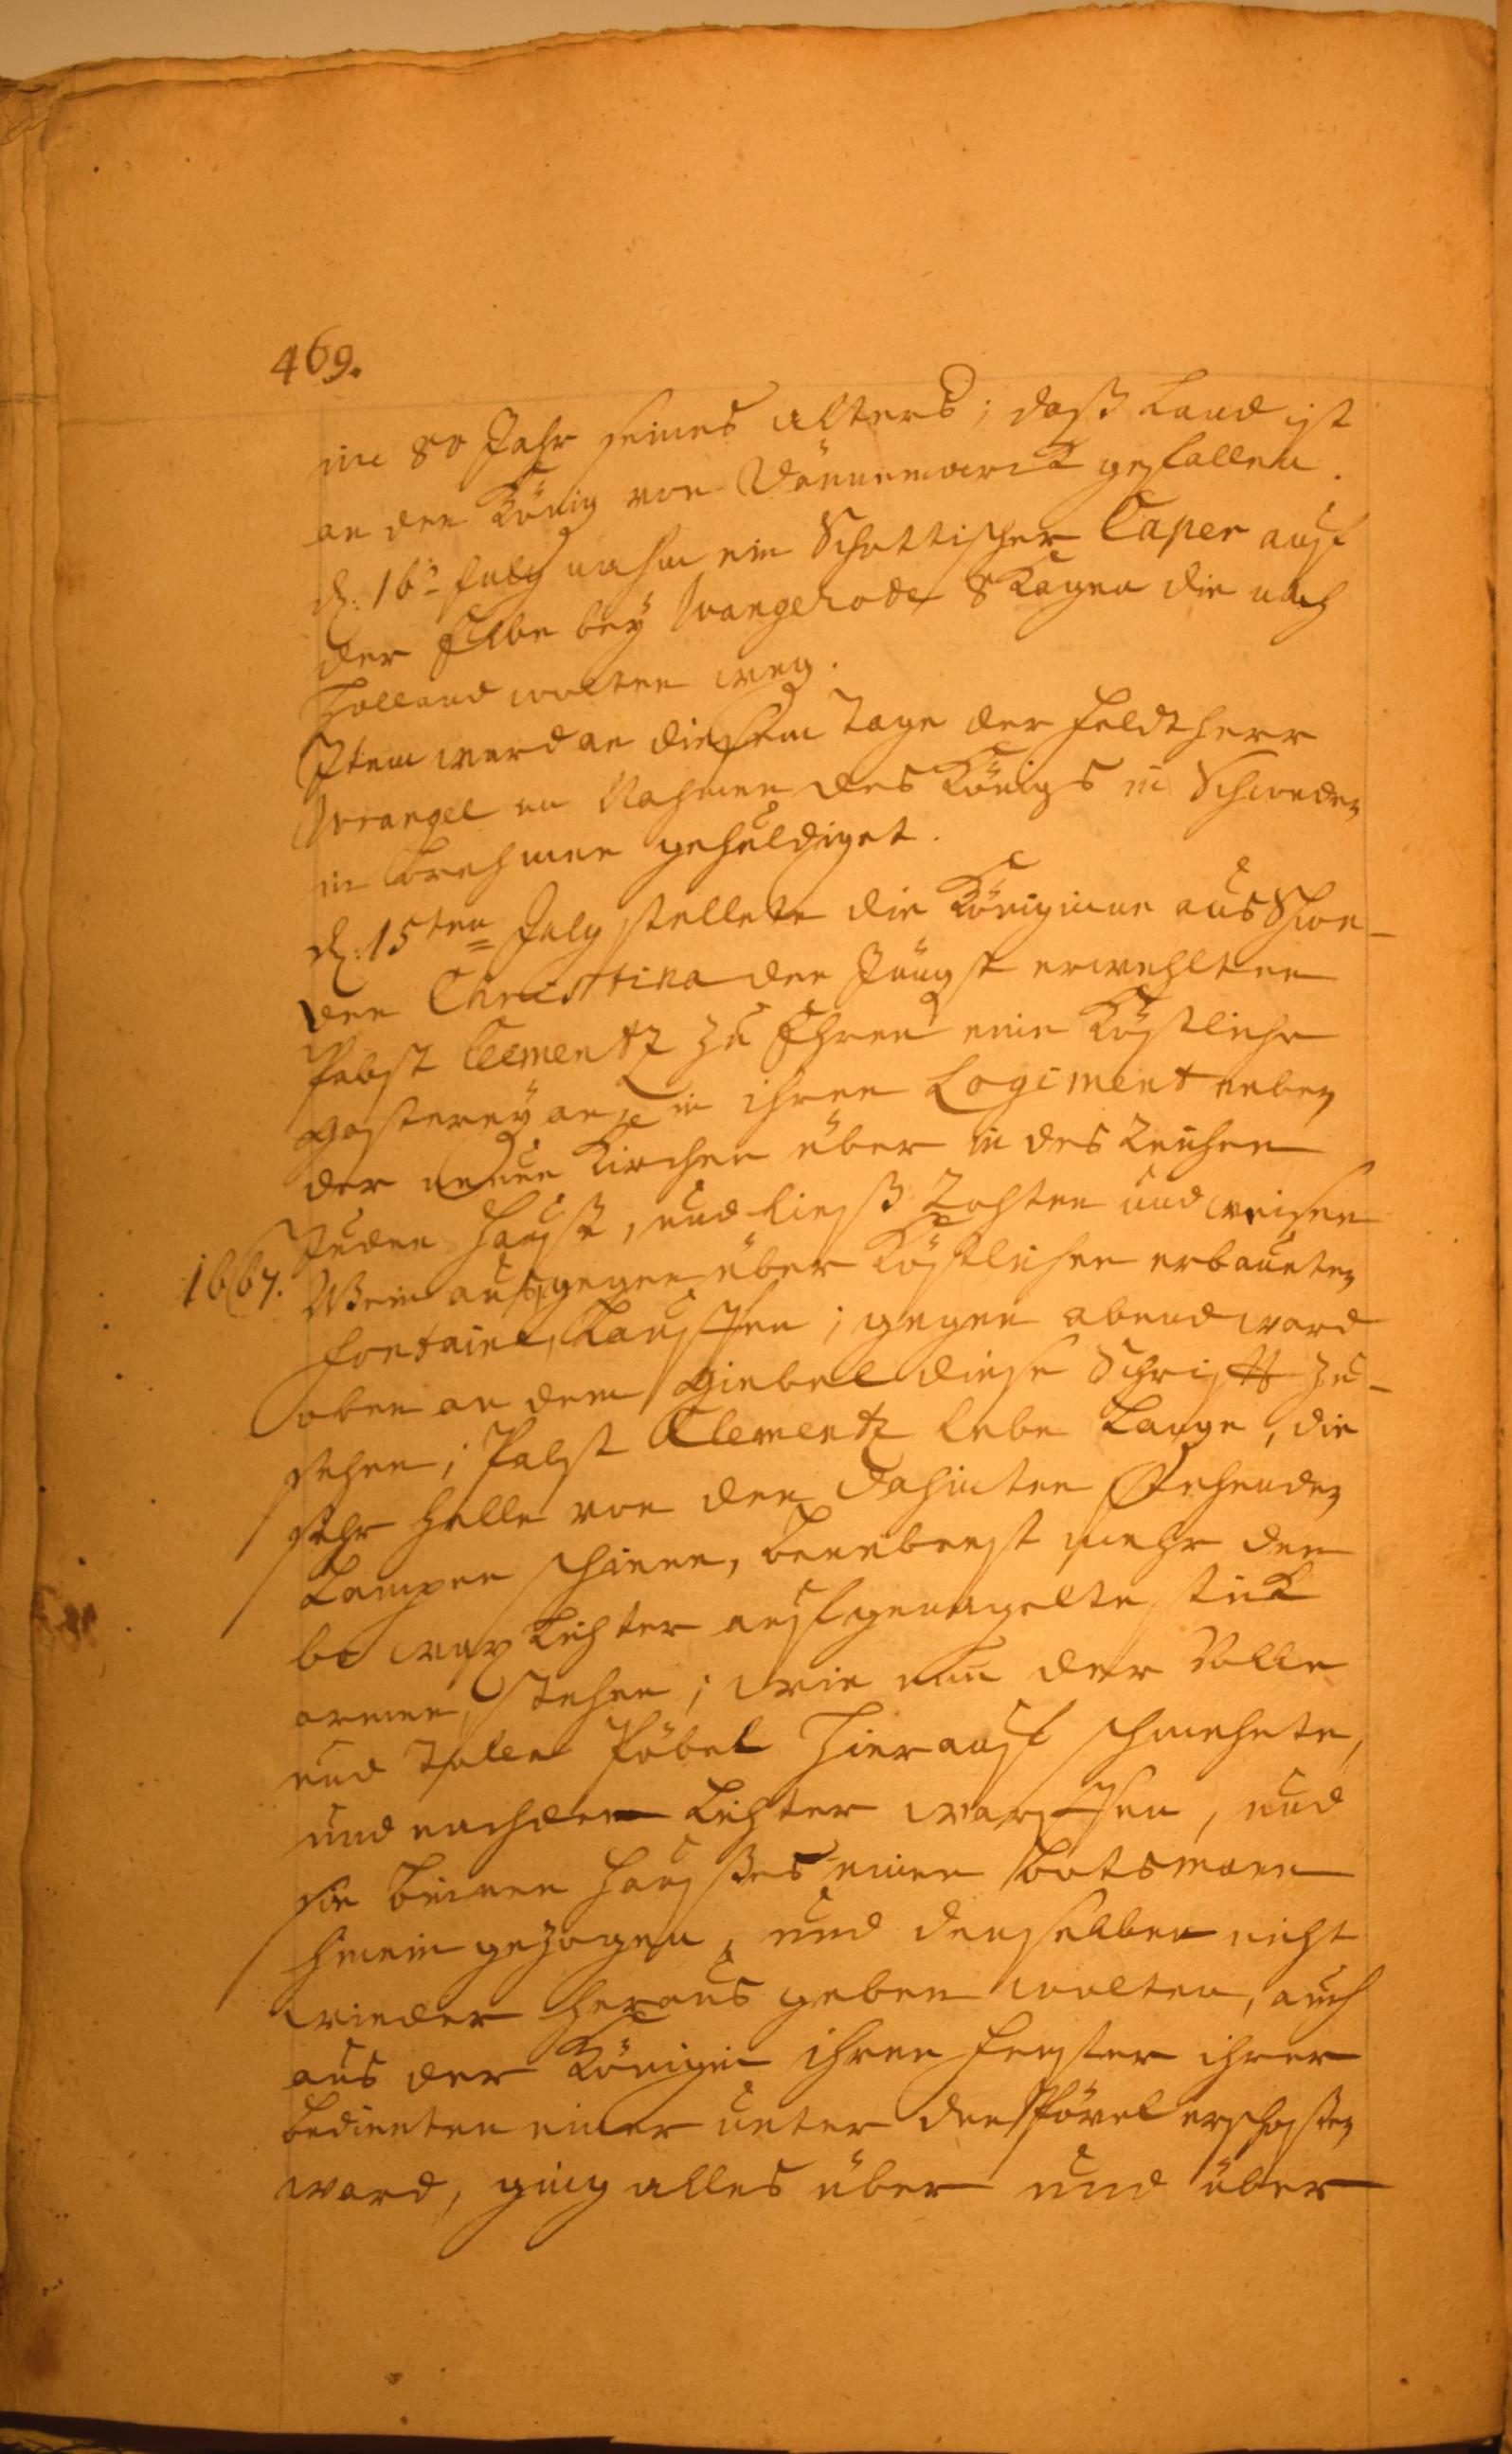 469.
im 80 Jahr seines alters; daß Land ist
an den König von Dännemarck gefallen.
d. 16. July nahm ein Schottischer Caper auff
der Elbe bey Wangerode 8 Kagen die nach
Holland wolten weg.
Item ward an diesem Tage der Feldtherr
Wrangel im Nahmen des Königs in Schweden
in Brehmen gehuldiget.
d. 15ten July stellete die Königinne aus Schwe-
den Christina den Jüngst erwehlten
Pabst Clementz zu Ehren eine Köstliche
gasterey an, in ihren Logiment neben
der neuen Kirchen über in des Reichen
Juden Hause, und ließ Rohten und weisen
1667. Wein aus gegen über Köstlichen erbaueten
fontaine lauffen; gegen abend ward
oben an dem Giebel diese Schrifft ge-
sehen; Pabst Clementz lebe Lange, die
sehr helle von den dahinten stehenden
Lampen schienen, benebenst mehr den
60 wax Lichter auff genagelte
armen, stehen; wie nun der Volle
und tolle Pöbel hierauff schmehete,
und nach den Lichter warffen, und
sie binnen Hauses einen Botsmann
hinein gezogen, und denselben nicht
wieder heraus geben wolten, auch
aus der Königin ihren Fenster ihrer
bedienten einer unter den Pövel erschossen
ward, ging alles über und über